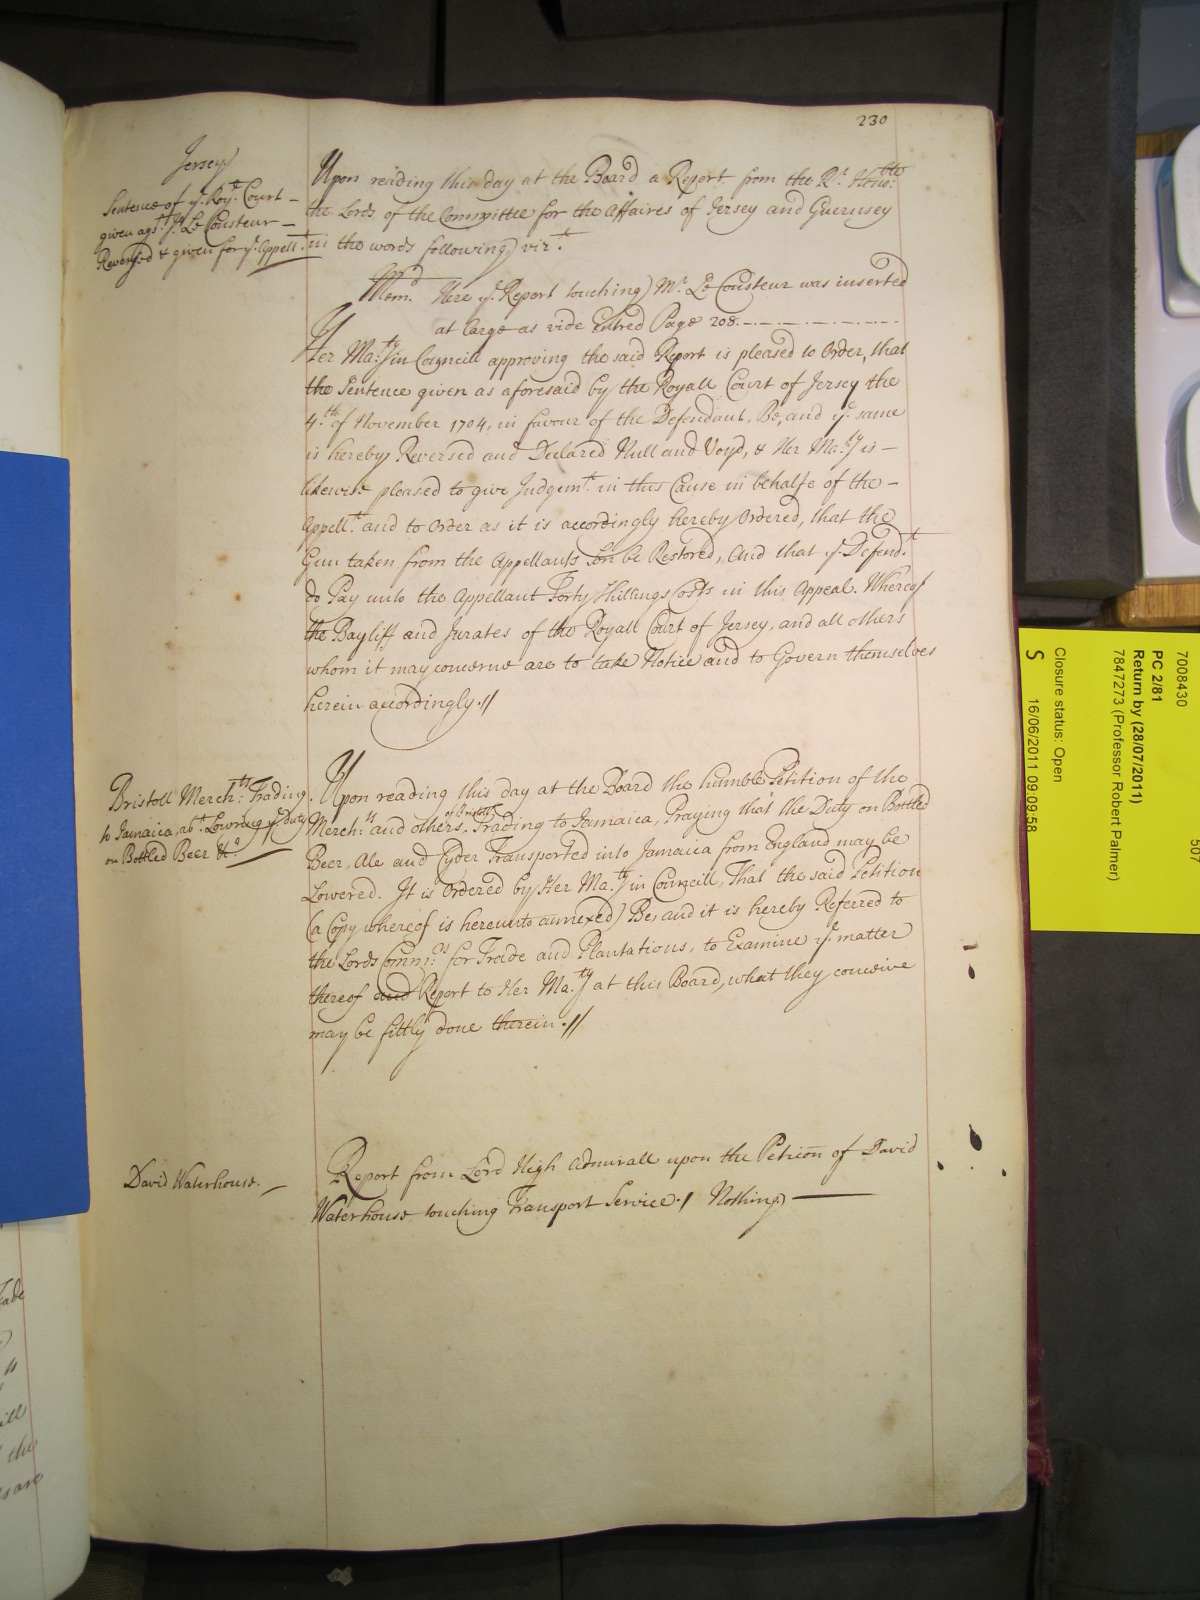 230
Jersey
Sentence of ye. Roy: Court
given agst. Mr. Le Cousteur
Revers'd & given for ye. Appellt.
Upon reading this day at the Board a Report from the Rt. Honble:
the Lords of the Committee for the Affaires of Jersey and Guernsey
in the words following) vizt.
Memd. Here ye. Report touching) Mr. Le Cousteur was inserted
at large as vide Entred Page 208.
Her Maty: in Councill approving the said Report is pleased to Order, that
the Sentence given as aforesaid by the Royall Court of Jersey the
4th. of November 1704, in favour of the Defendant, Be, and ye. same
is hereby Reversed and Declared Null and Voyd, & Her Maty: is
likewise pleased to give Judgemt. in this Cause in behalfe of the
Appellt. and to Order as it is accordingly hereby Ordered, that the
Gun taken from the Appellants Son be Restored, And that ye. Defendt.
do Pay unto the Appellant Forty Shillings Costs in this Appeal. Whereof
the Bayliff and Jurates of the Royall Court of Jersey, and all others
whom it may concerne are to take Notice and to Govern themselves
herein accordingly.//
Bristoll Merchts: Trading
to Jamaica, abt. Lowring ye. Duty
on Bottled Beer &c.
Upon reading this day at the Board the humble Petition of the
Merchts: and others, of Bristoll Trading to Jamaica, Praying that the Duty on Bottled
Beer, Ale and Cyder Transported into Jamaica from England may be
Lowered. It is Ordered by Her Maty: in Councill, That the said Petition
(a Copy whereof is hereunto annexed) Be, and it is hereby Referred to
the Lords Commrs: for Trade and Plantations, to Examine ye. matter
thereof and Report to Her Maty: at this Board, what they conceive
may be fittly done therein.//
David Waterhouse.
Report from Lord High Admirall upon the Petition of David
Waterhouse touching Transport Service./ Nothing)
7008430
PC 2/81
Return by (28/07/2011)
7847273 (Professor Robert Palmer)
Closure status: Open
S 16/06/2011 09:09:58
507
the